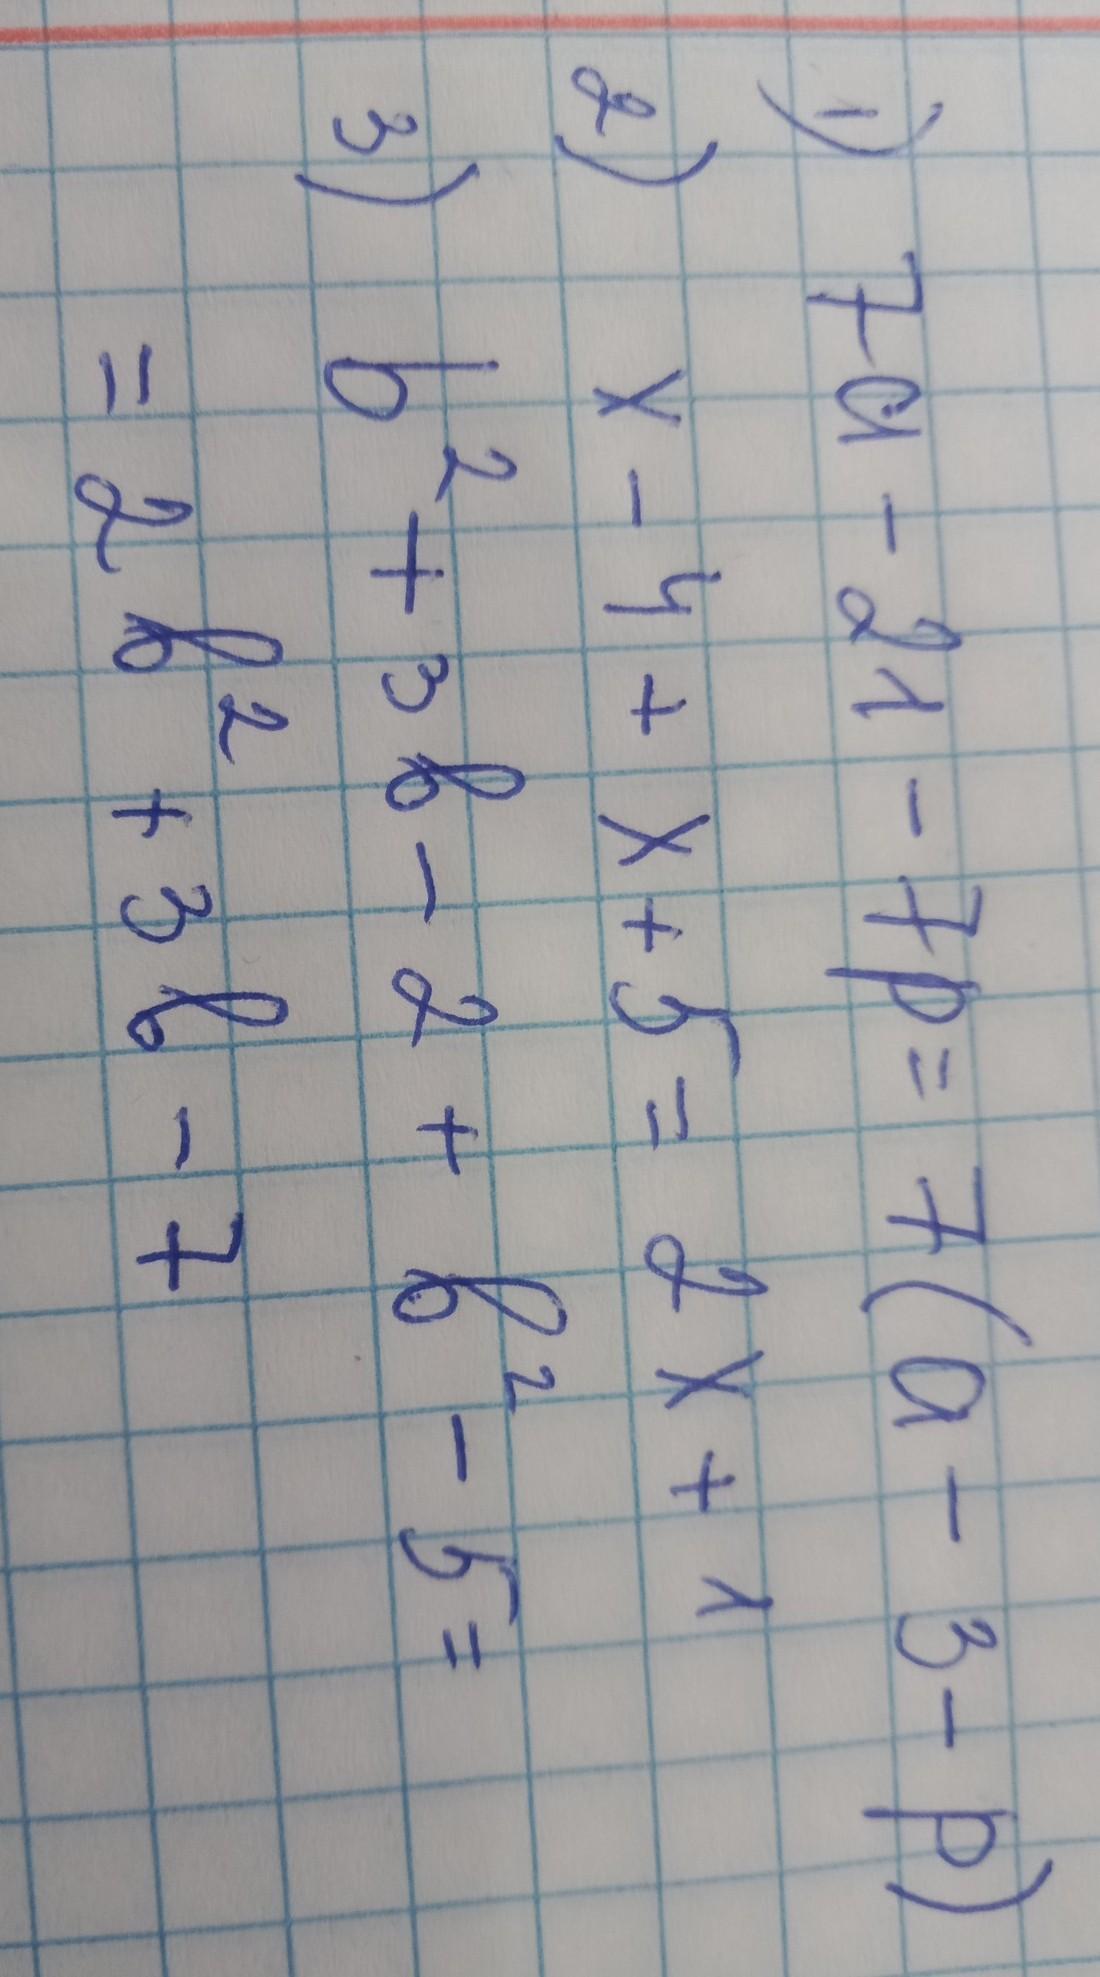 1) 7a - 21 - 7p = 7(a - 3 - p)
2) x - 4 + x + 5 = 2x + 1
3) b² + 3b - 2 + b² - 5 =
= 2b² + 3b - 7